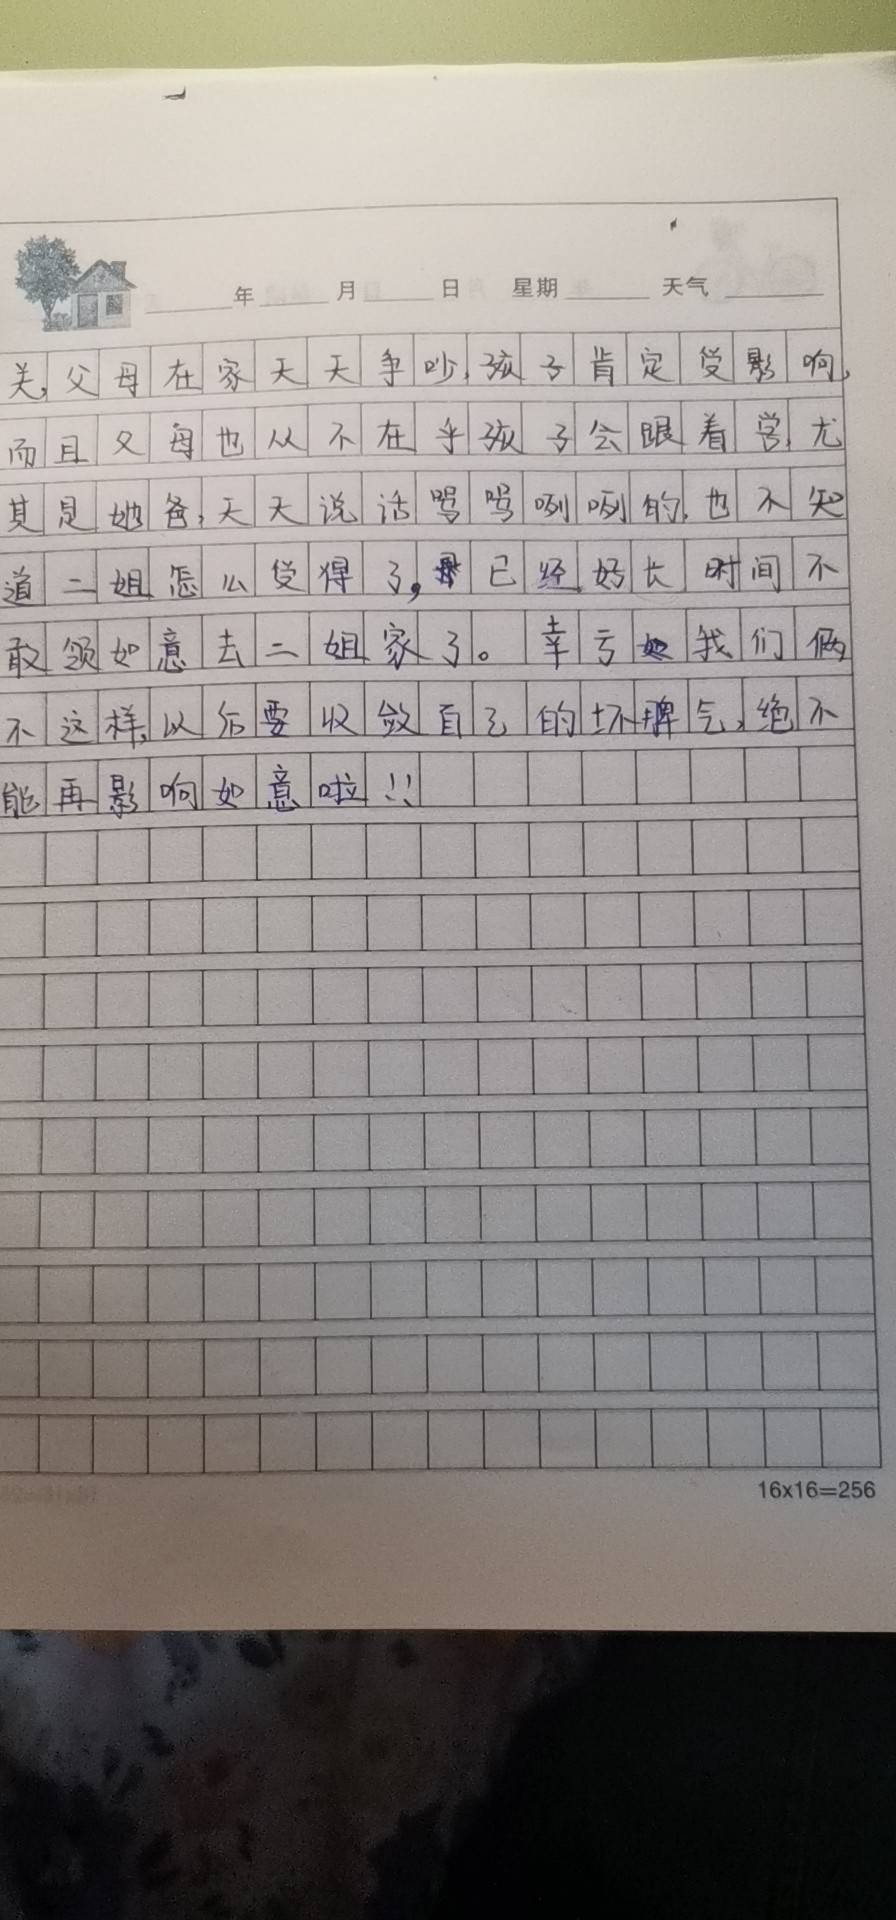 年 月 日 星期 天气
关,父母在家天天争吵,孩子肯定受影响,
而且父母也从不在乎孩子会跟着学,尤
其是她爸,天天说话骂骂咧咧的,也不知
道二姐怎么受得了,已经好长时间不
敢领如意去二姐家了。幸亏我们俩
不这样,以后要收敛自己的坏脾气,绝不
能再影响如意啦!!
16x16=256